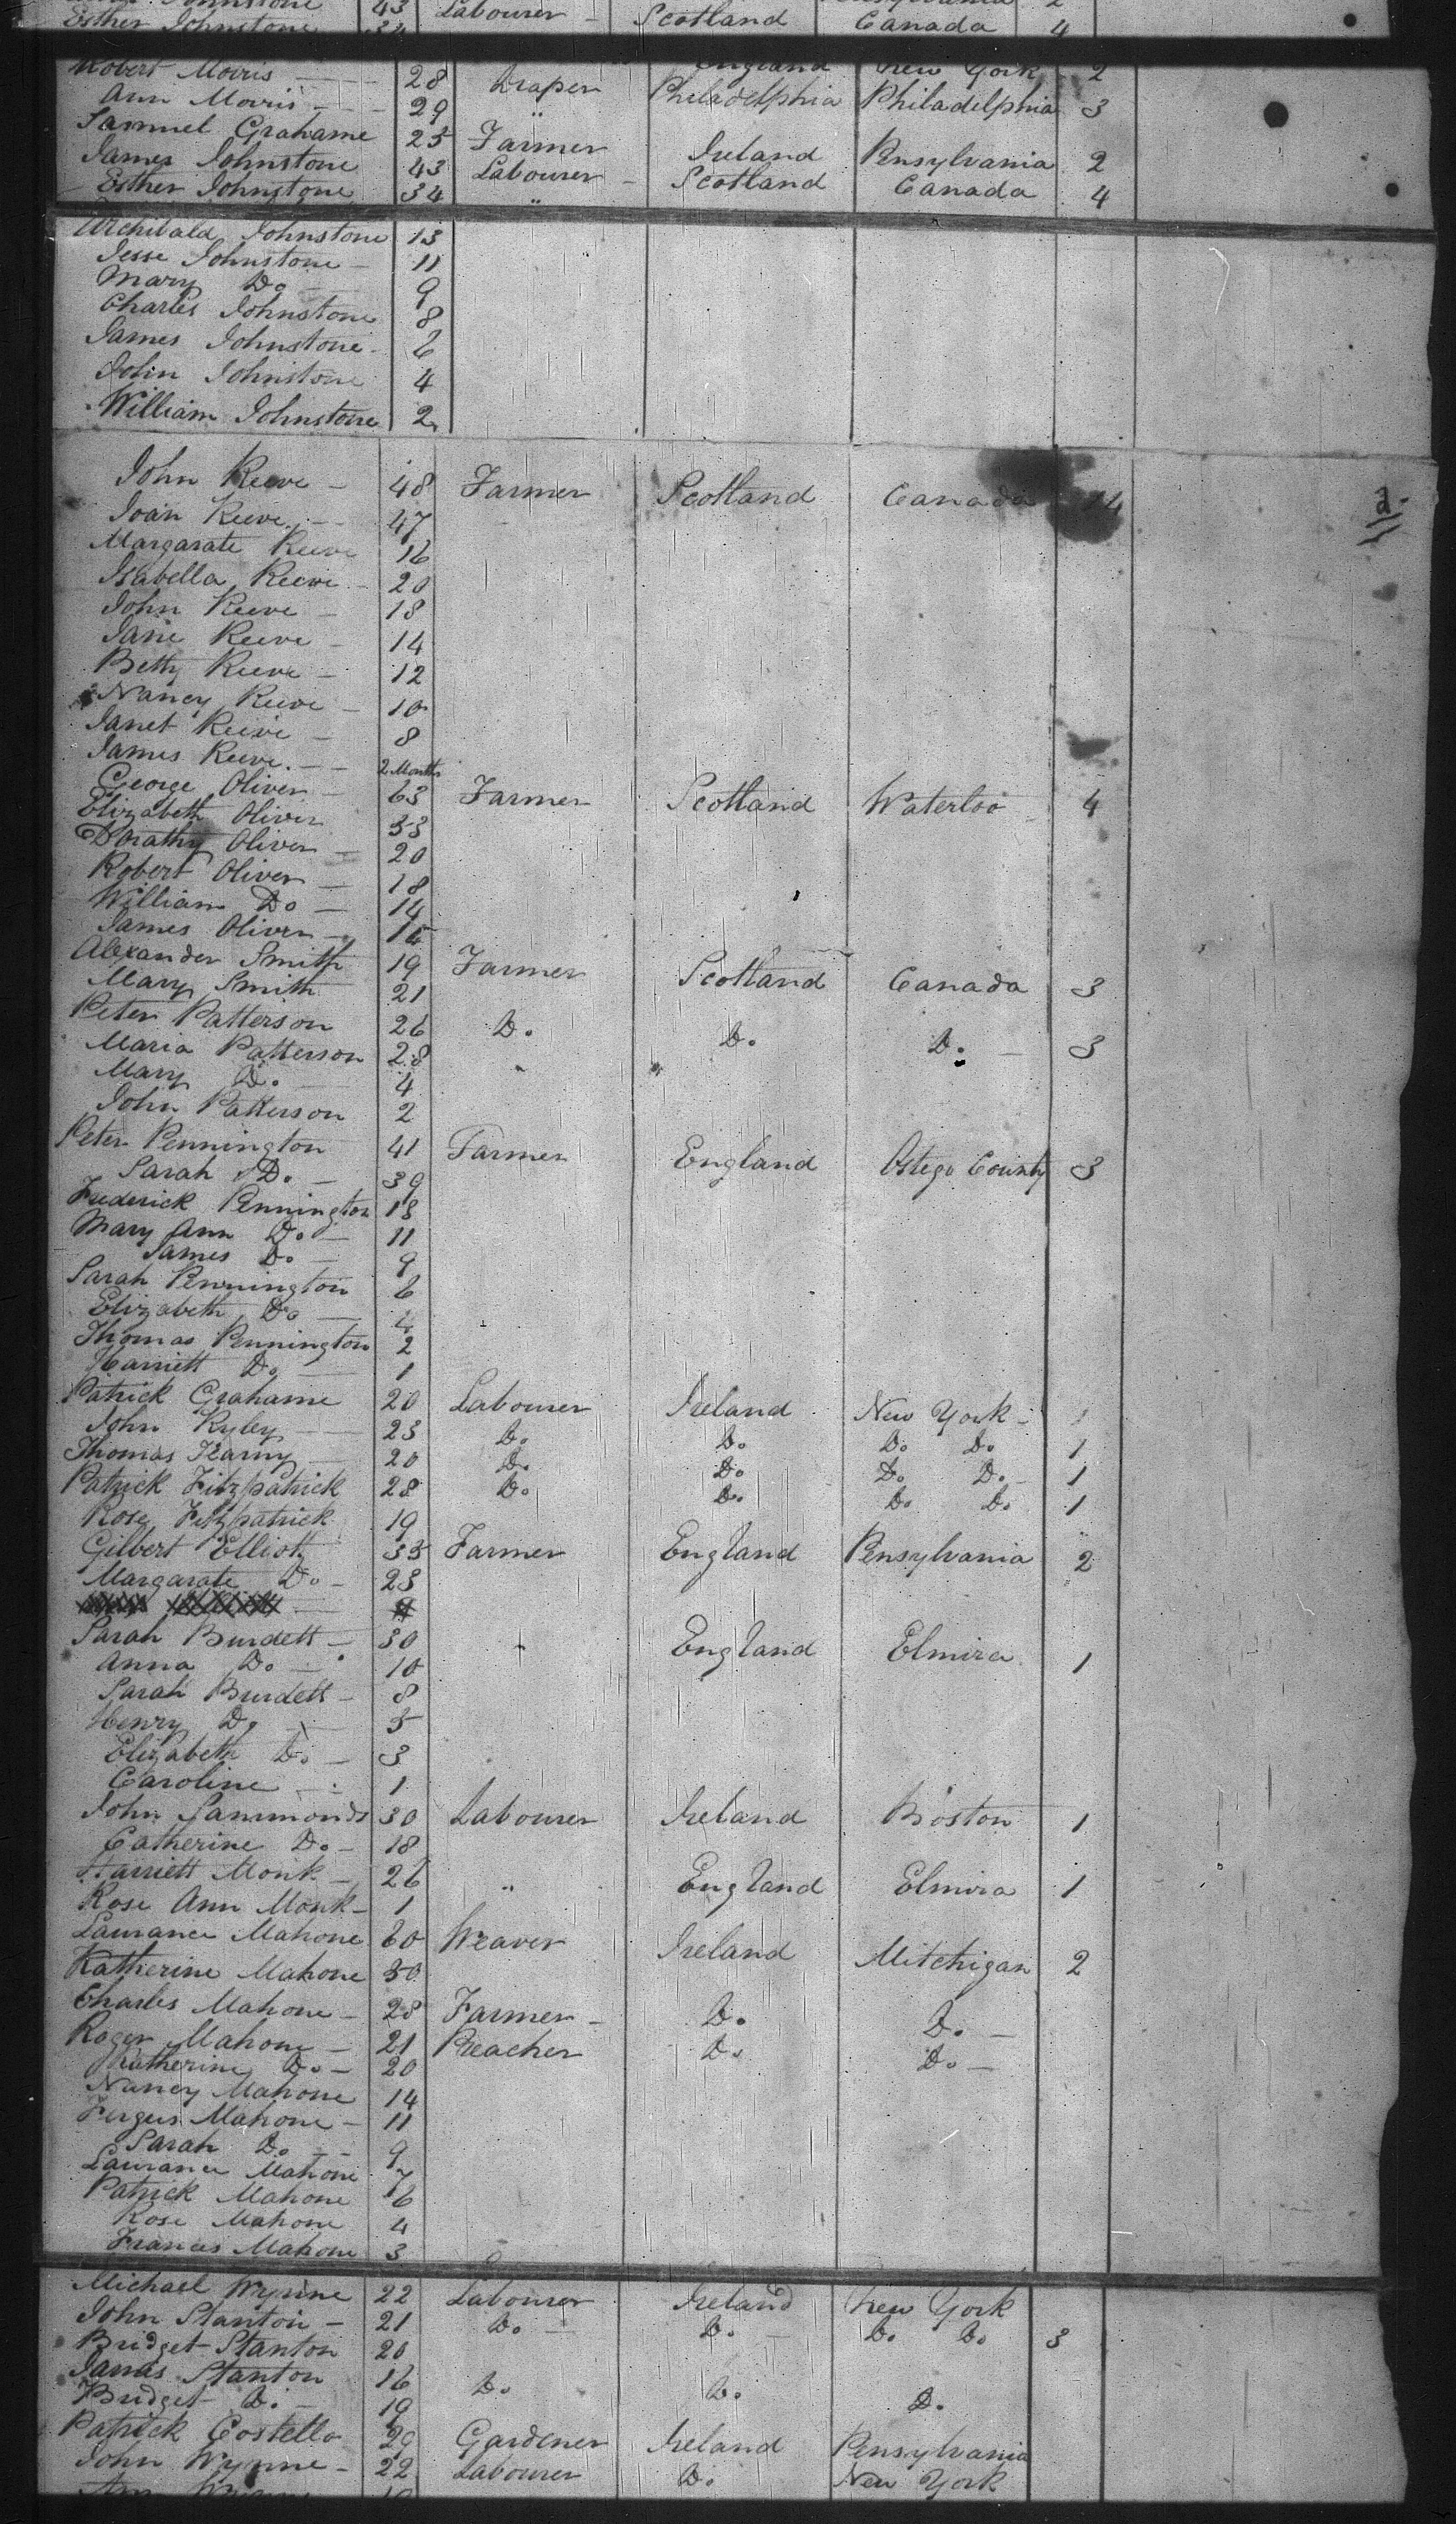 Johnstone 43 Labourer - Scotland 2
Esther Johnstone 34 Canada 4
Robert Morris 28 Draper England New York 2
Ann Morris 29 " Philadelphia Philadelphia 3
Samuel Grahame 25 Farmer Ireland Pensylvania 2
James Johnstone 43 Labourer - Scotland Canada 4
Esther Johnstone 34 "
Archibald Johnstone 13
Jesse Johnstone - 11
Mary Do 9
Charles Johnstone 8
James Johnstone - 6
John Johnstone 4
William Johnstone 2
John Reeve - 48 Farmer Scotland Canada 14 2
Joan Reeve - 47
Margarate Reeve 16
Isabella Reeve - 20
John Reeve - 18
Jane Reeve - 14
Betty Reeve - 12
Nancy Reeve - 10
Janet Reeve - 8
James Reeve - 2 Months
George Oliver - 63 Farmer Scotland Waterloo 4
Elizabeth Oliver 53
Dorathy Oliver - 20
Robert Oliver - 18
William Do - 14
James Oliver -
Alexander Smith 19 Farmer Scotland Canada 3
Mary Smith 21
Peter Patterson 26 Do Do Do - 3
Maria Patterson 28 "
Mary Do - 4
John Patterson 2
Peter Pennington 41 Farmer England Ostego County 3
Sarah Do - 39
Frederick Pennington 13
Mary Ann Do - 11
James Do - 9
Sarah Pennington 6
Elizabeth Do - 4
Thomas Pennington 2
Harriett Do - 1
Patrick Grahame 20 Labourer Ireland New York - 1
John Ryley - 23 Do Do Do Do 1
Thomas Kearny - 20 Do Do Do Do - 1
Patrick Fitzpatrick 28 Do Do Do Do 1
Rose Fitzpatrick 19
Gilbert Elliott 35 Farmer England Pensylvania 2
Margarate Do - 23
Sarah Burdett - 30 " England Elmira 1
Anna Do - 10
Sarah Burdett - 8
Henry Do - 5
Elizabeth Do - 3
Caroline - 1
John Sammonds 30 Labourer Ireland Boston 1
Catherine Do - 18
Harriett Monk - 26 " England Elmira 1
Rose Ann Monk - 1
Laurance Mahone 60 Weaver Ireland Mitchigan 2
Katherine Mahone 50
Charles Mahone - 28 Farmer - Do Do -
Roger Mahone - 21 Preacher Do Do -
Katherine Do - 20
Nancy Mahone 14
Fergus Mahone - 11
Sarah Do - 9
Laurance Mahone 7
Patrick Mahone 6
Rose Mahone 4
Francis Mahone 3
Michael Wynne 22 Labourer Ireland New York
John Stanton - 21 Do - Do - Do Do 3
Bridget Stanton 20
James Stanton 16 Do Do Do
Bridget Do - 19
Patrick Costello 29 Gardener Ireland Pensylvania
John Wynne - 22 Labourer Do New York
Ann